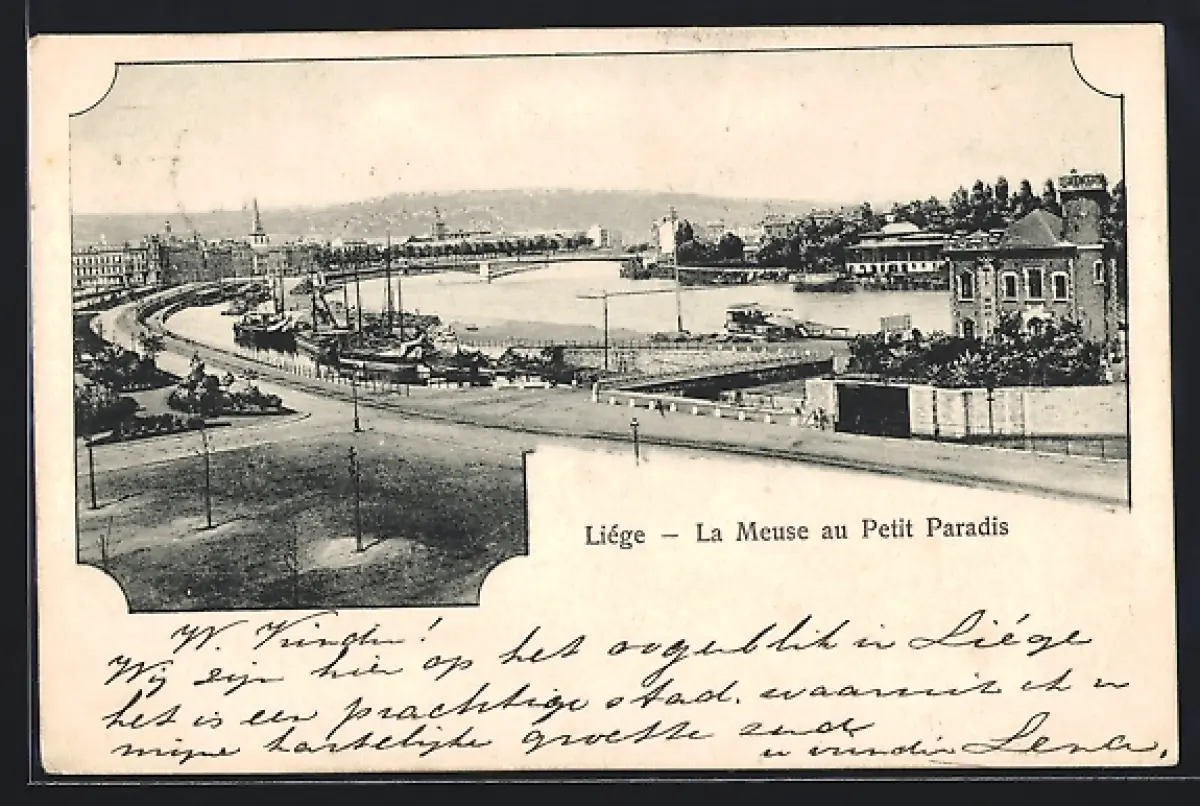 Liége – La Meuse au Petit Paradis
W. Vindu!
Wij zijn hier op het oogenblik in Liége
het is een prachtige stad, waarmit ik u
mijne hartelijke groette zend
u vriendin Lena.